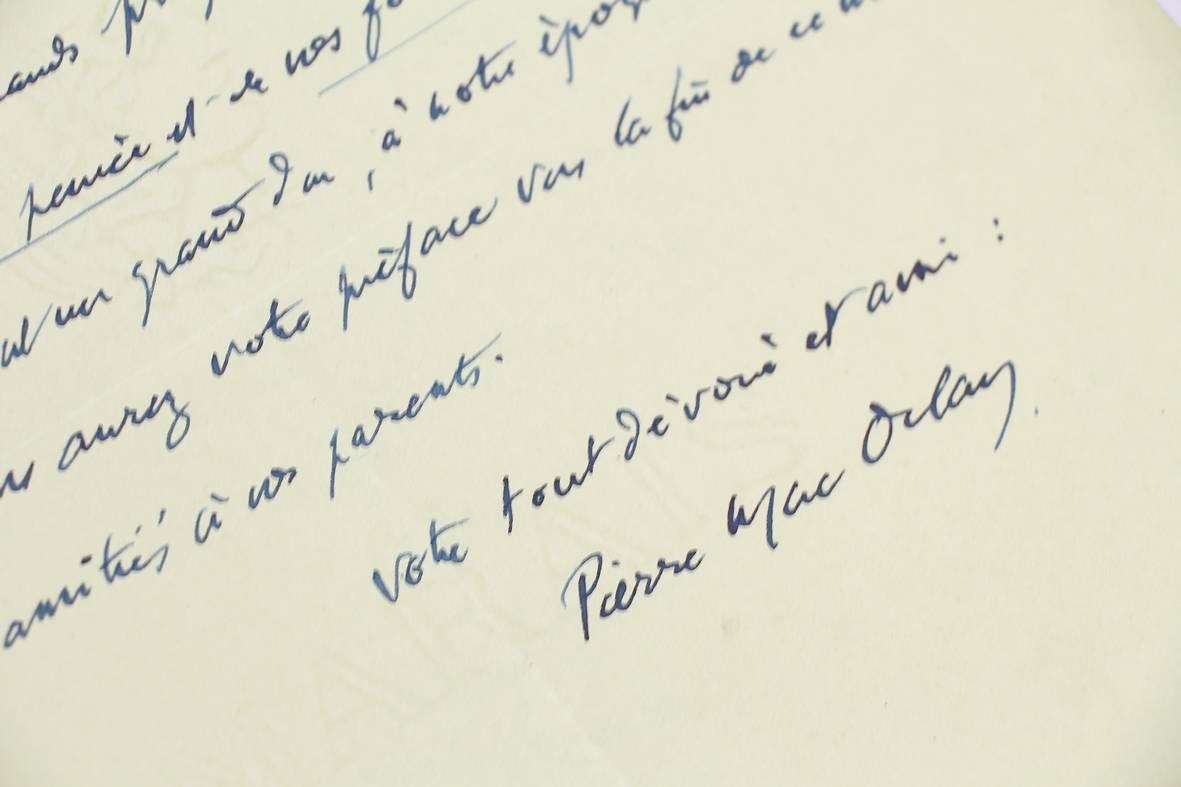 pensée et de vos
un grand don, à notre
aurez votre préface vers la fin de ce
amitiés à vos parents.
votre tout dévoué et ami :
Pierre Mac Orlan.